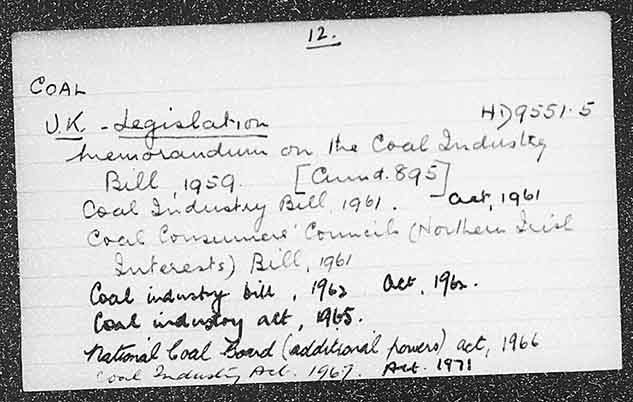 12.
COAL
U.K. - Legislation HD9551.5
Memorandum on the Coal Industry
Bill, 1959. [Cmnd. 895]
Coal Industry Bill, 1961. - Act, 1961
Coal Consumers' Councils (Northern Irish
Interests) Bill, 1961
Coal industry bill, 1962 Act, 1962.
Coal industry act, 1965.
National Coal Board (additional powers) act, 1966
Coal Industry Act. 1967. Act. 1971